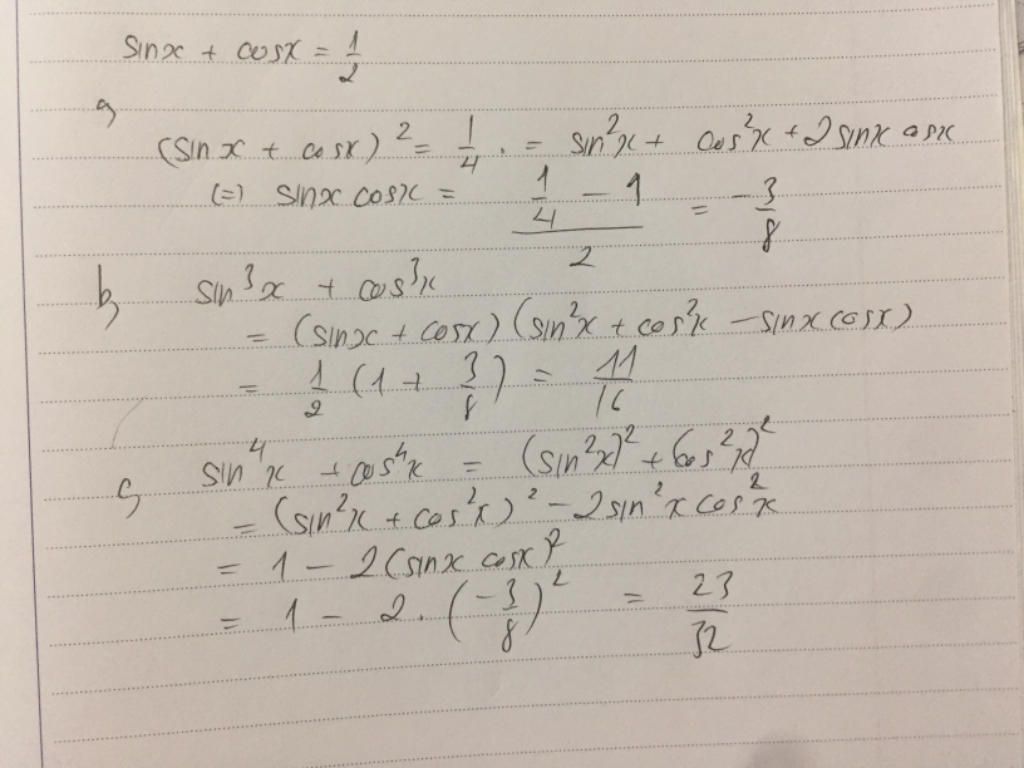 sinx + cosx = 1/2
a,
(sinx + cosx)² = 1/4 . = sin²x + cos²x + 2sinx cosx
(=) sinx cosx = (1/4 - 1)/2 = -3/8
b, sin³x + cos³x
= (sinx + cosx) (sin²x + cos²x - sinx cosx)
= 1/2 (1 + 3/8) = 11/16
c, sin⁴x + cos⁴x = (sin²x)² + (cos²x)²
= (sin²x + cos²x)² - 2sin²x cos²x
= 1 - 2(sinx cosx)²
= 1 - 2. (-3/8)² = 23/32